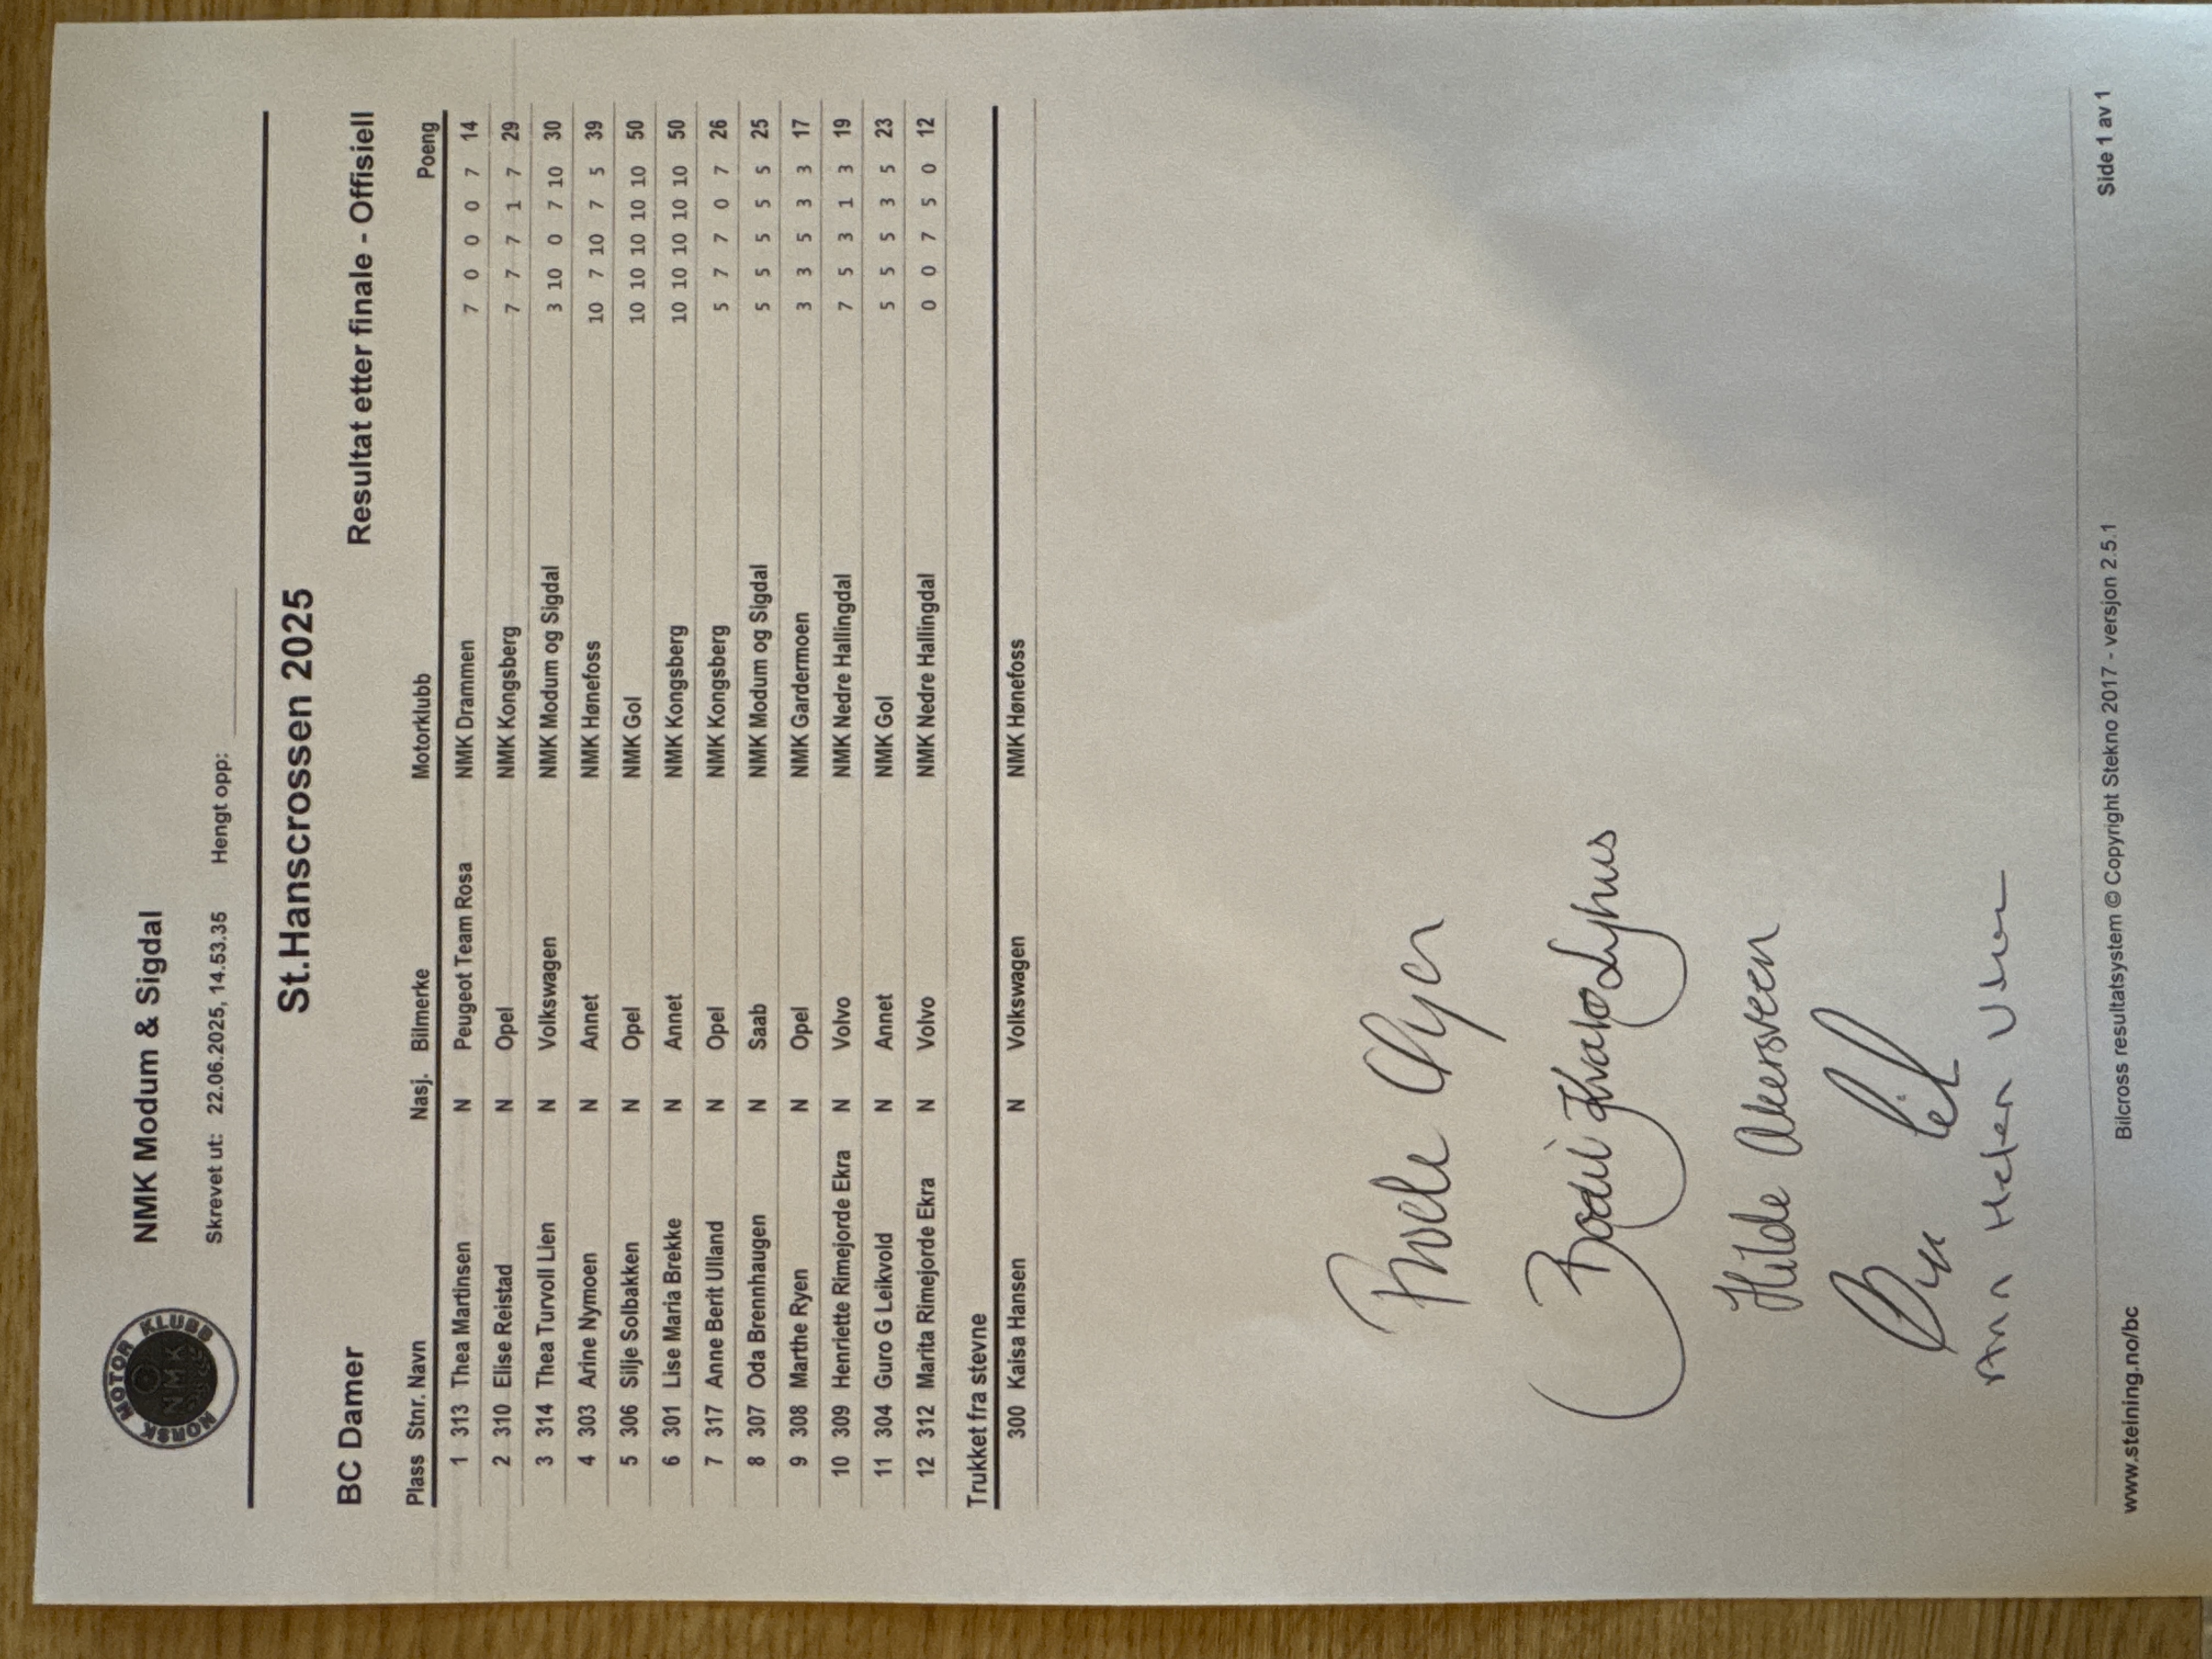 NORSK MOTOR KLUBB
NMK
NMK Modum & Sigdal
Skrevet ut: 22.06.2025, 14.53.35 Hengt opp:
St.Hanscrossen 2025
BC Damer Resultat etter finale - Offisiell
Plass Stnr. Navn Nasj. Bilmerke Motorklubb Poeng
1 313 Thea Martinsen N Peugeot Team Rosa NMK Drammen 7 0 0 0 7 14
2 310 Elise Reistad N Opel NMK Kongsberg 7 7 7 1 7 29
3 314 Thea Turvoll Lien N Volkswagen NMK Modum og Sigdal 3 10 0 7 10 30
4 303 Arine Nymoen N Annet NMK Hønefoss 10 7 10 7 5 39
5 306 Silje Solbakken N Opel NMK Gol 10 10 10 10 10 50
6 301 Lise Maria Brekke N Annet NMK Kongsberg 10 10 10 10 10 50
7 317 Anne Berit Ulland N Opel NMK Kongsberg 5 7 7 0 7 26
8 307 Oda Brennhaugen N Saab NMK Modum og Sigdal 5 5 5 5 5 25
9 308 Marthe Ryen N Opel NMK Gardermoen 3 3 5 3 3 17
10 309 Henriette Rimejorde Ekra N Volvo NMK Nedre Hallingdal 7 5 3 1 3 19
11 304 Guro G Leikvold N Annet NMK Gol 5 5 5 3 5 23
12 312 Marita Rimejorde Ekra N Volvo NMK Nedre Hallingdal 0 0 7 5 0 12
Trukket fra stevne
300 Kaisa Hansen N Volkswagen NMK Hønefoss
Bodil Lyhus
Hilde Akersveen
Ann Helen
www.steining.no/bc Bilcross resultatsystem © Copyright Stekno 2017 - versjon 2.5.1 Side 1 av 1